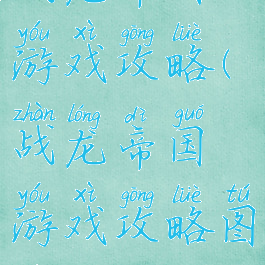 yóu xì gōng lüè
游戏攻略(
zhàn lóng dì guó
战龙帝国
yóu xì gōng lüè tú
游戏攻略图